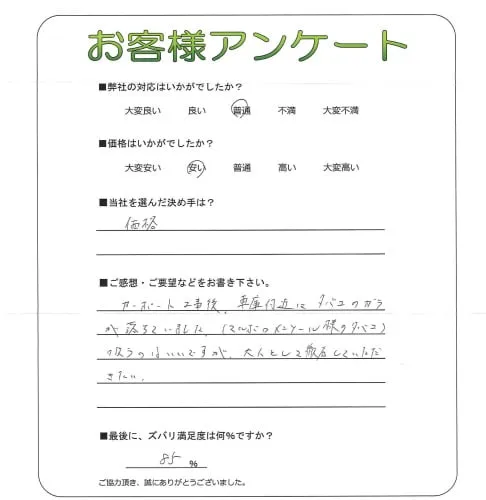 お客様アンケート
■弊社の対応はいかがでしたか？
大変良い 良い 普通 不満 大変不満
■価格はいかがでしたか？
大変安い 安い 普通 高い 大変高い
■当社を選んだ決め手は？
価格
■ご感想・ご要望などをお書き下さい。
カーポート工事後、車庫付近にタバコのガラ
が落ちていました。（マルボロメンソール様のタバコ）
吸うのはいいですが、大人として徹底していただ
きたい。
■最後に、ズバリ満足度は何％ですか？
85 %
ご協力頂き、誠にありがとうございました。